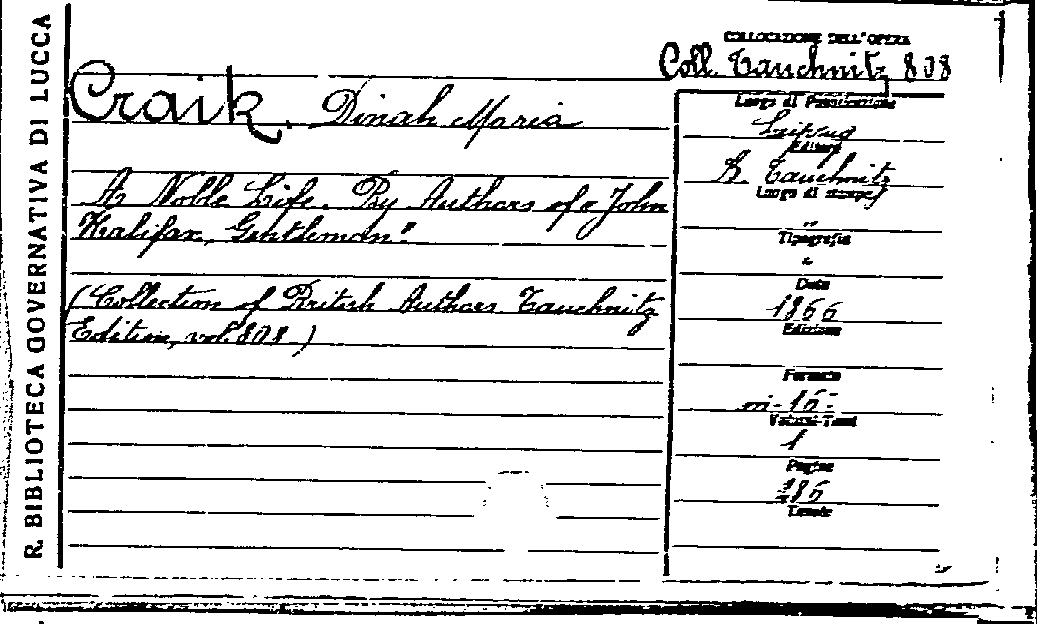 R. BIBLIOTECA GOVERNATIVA DI LUCCA
COLLOCAZIONE DELL'OPERA
Coll. Tauchnitz 808
Craik, Dinah Maria
A Noble Life. By Authors of "John
Halifax, Gentleman".
(Collection of British Authors Tauchnitz
Edition, vol. 808)
Luogo di Pubblicazione
Leipzig
Editore
B. Tauchnitz
Luogo di stampa
"
Tipografia
"
Data
1866
Edizione
Formato
in-16-
Volumi-Tomi
1
Pagine
286
Tavole